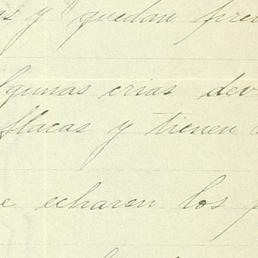 y quedan
algunas crias
flacas y tienen
echaren los